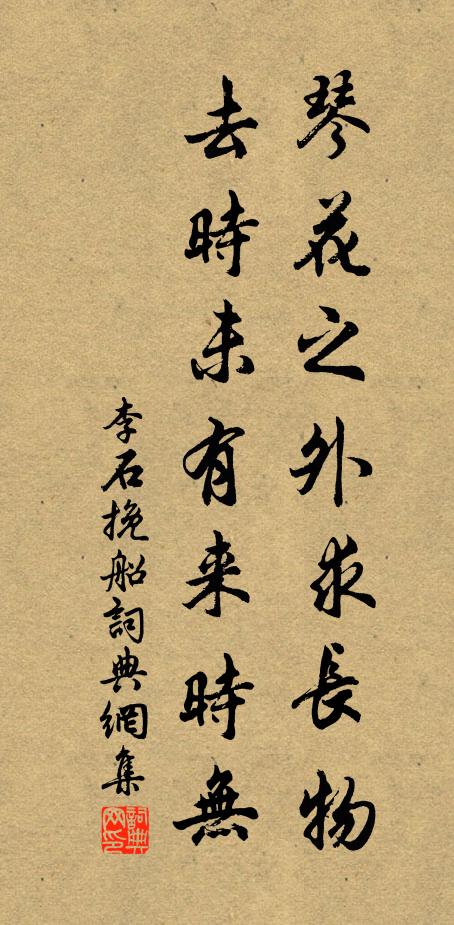 琴花之外求長物
去時未有来時無
李石挽船詞典網集
詞典网印